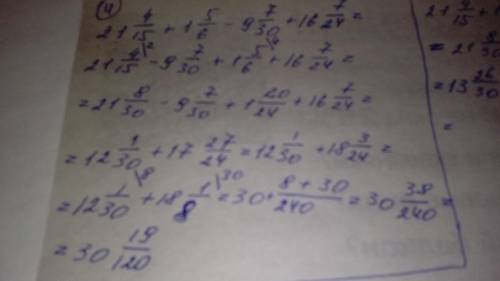 4
21 4/15 + 1 5/6 - 9 7/30 + 16 7/24 =
21 4/15 - 9 7/30 + 1 5/6 + 16 7/24 =
= 21 8/30 - 9 7/30 + 1 20/24 + 16 7/24 =
= 12 1/30 + 17 27/24 = 12 1/30 + 18 3/24 =
= 12 1/30 + 18 1/8 = 30 + (8 + 30)/240 = 30 38/240 =
= 30 19/120
21 4/15 + 1
= 21 8/30
= 13 26/30
=